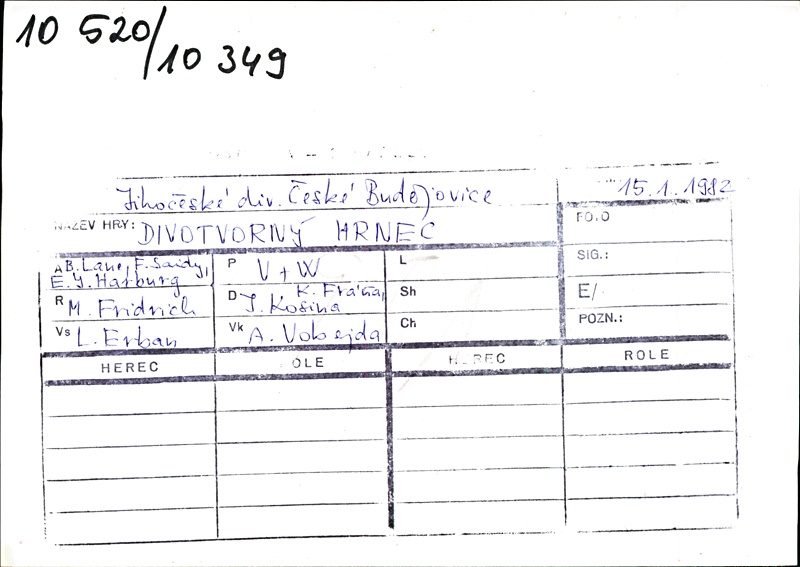 10 520/10 349
Jihočeské div. České Budějovice
15.1.1982
NÁZEV HRY: DIVOTVORNÝ HRNEC
FOTO
A B. Lane, F. Saidy, E. Y. Harburg
P V + W
L
SIG.:
R M. Fridrich
D K. Fráňa, J. Kosina
Sh
E/
Vs L. Erban
Vk A. Vobejda
Ch
POZN.:
HEREC ROLE HEREC ROLE